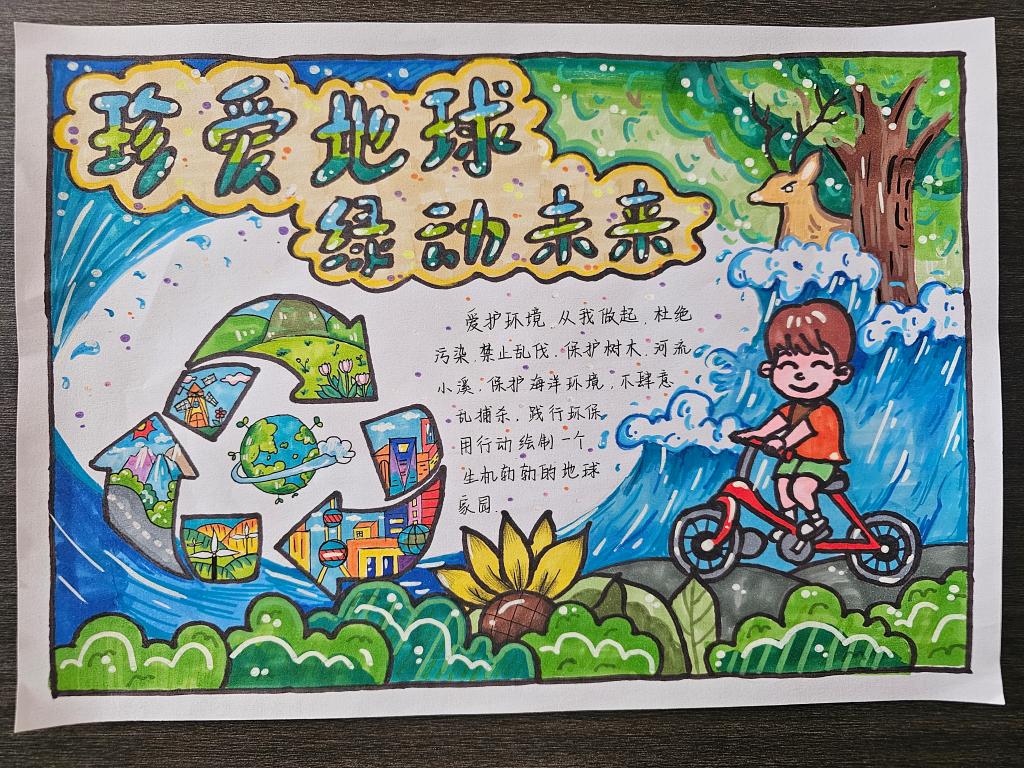 珍爱地球
绿动未来
爱护环境.从我做起.杜绝
污染.禁止乱伐.保护树木.河流
小溪.保护海洋环境,不肆意
乱捕杀.践行环保
用行动绘制一个
生机勃勃的地球
家园.